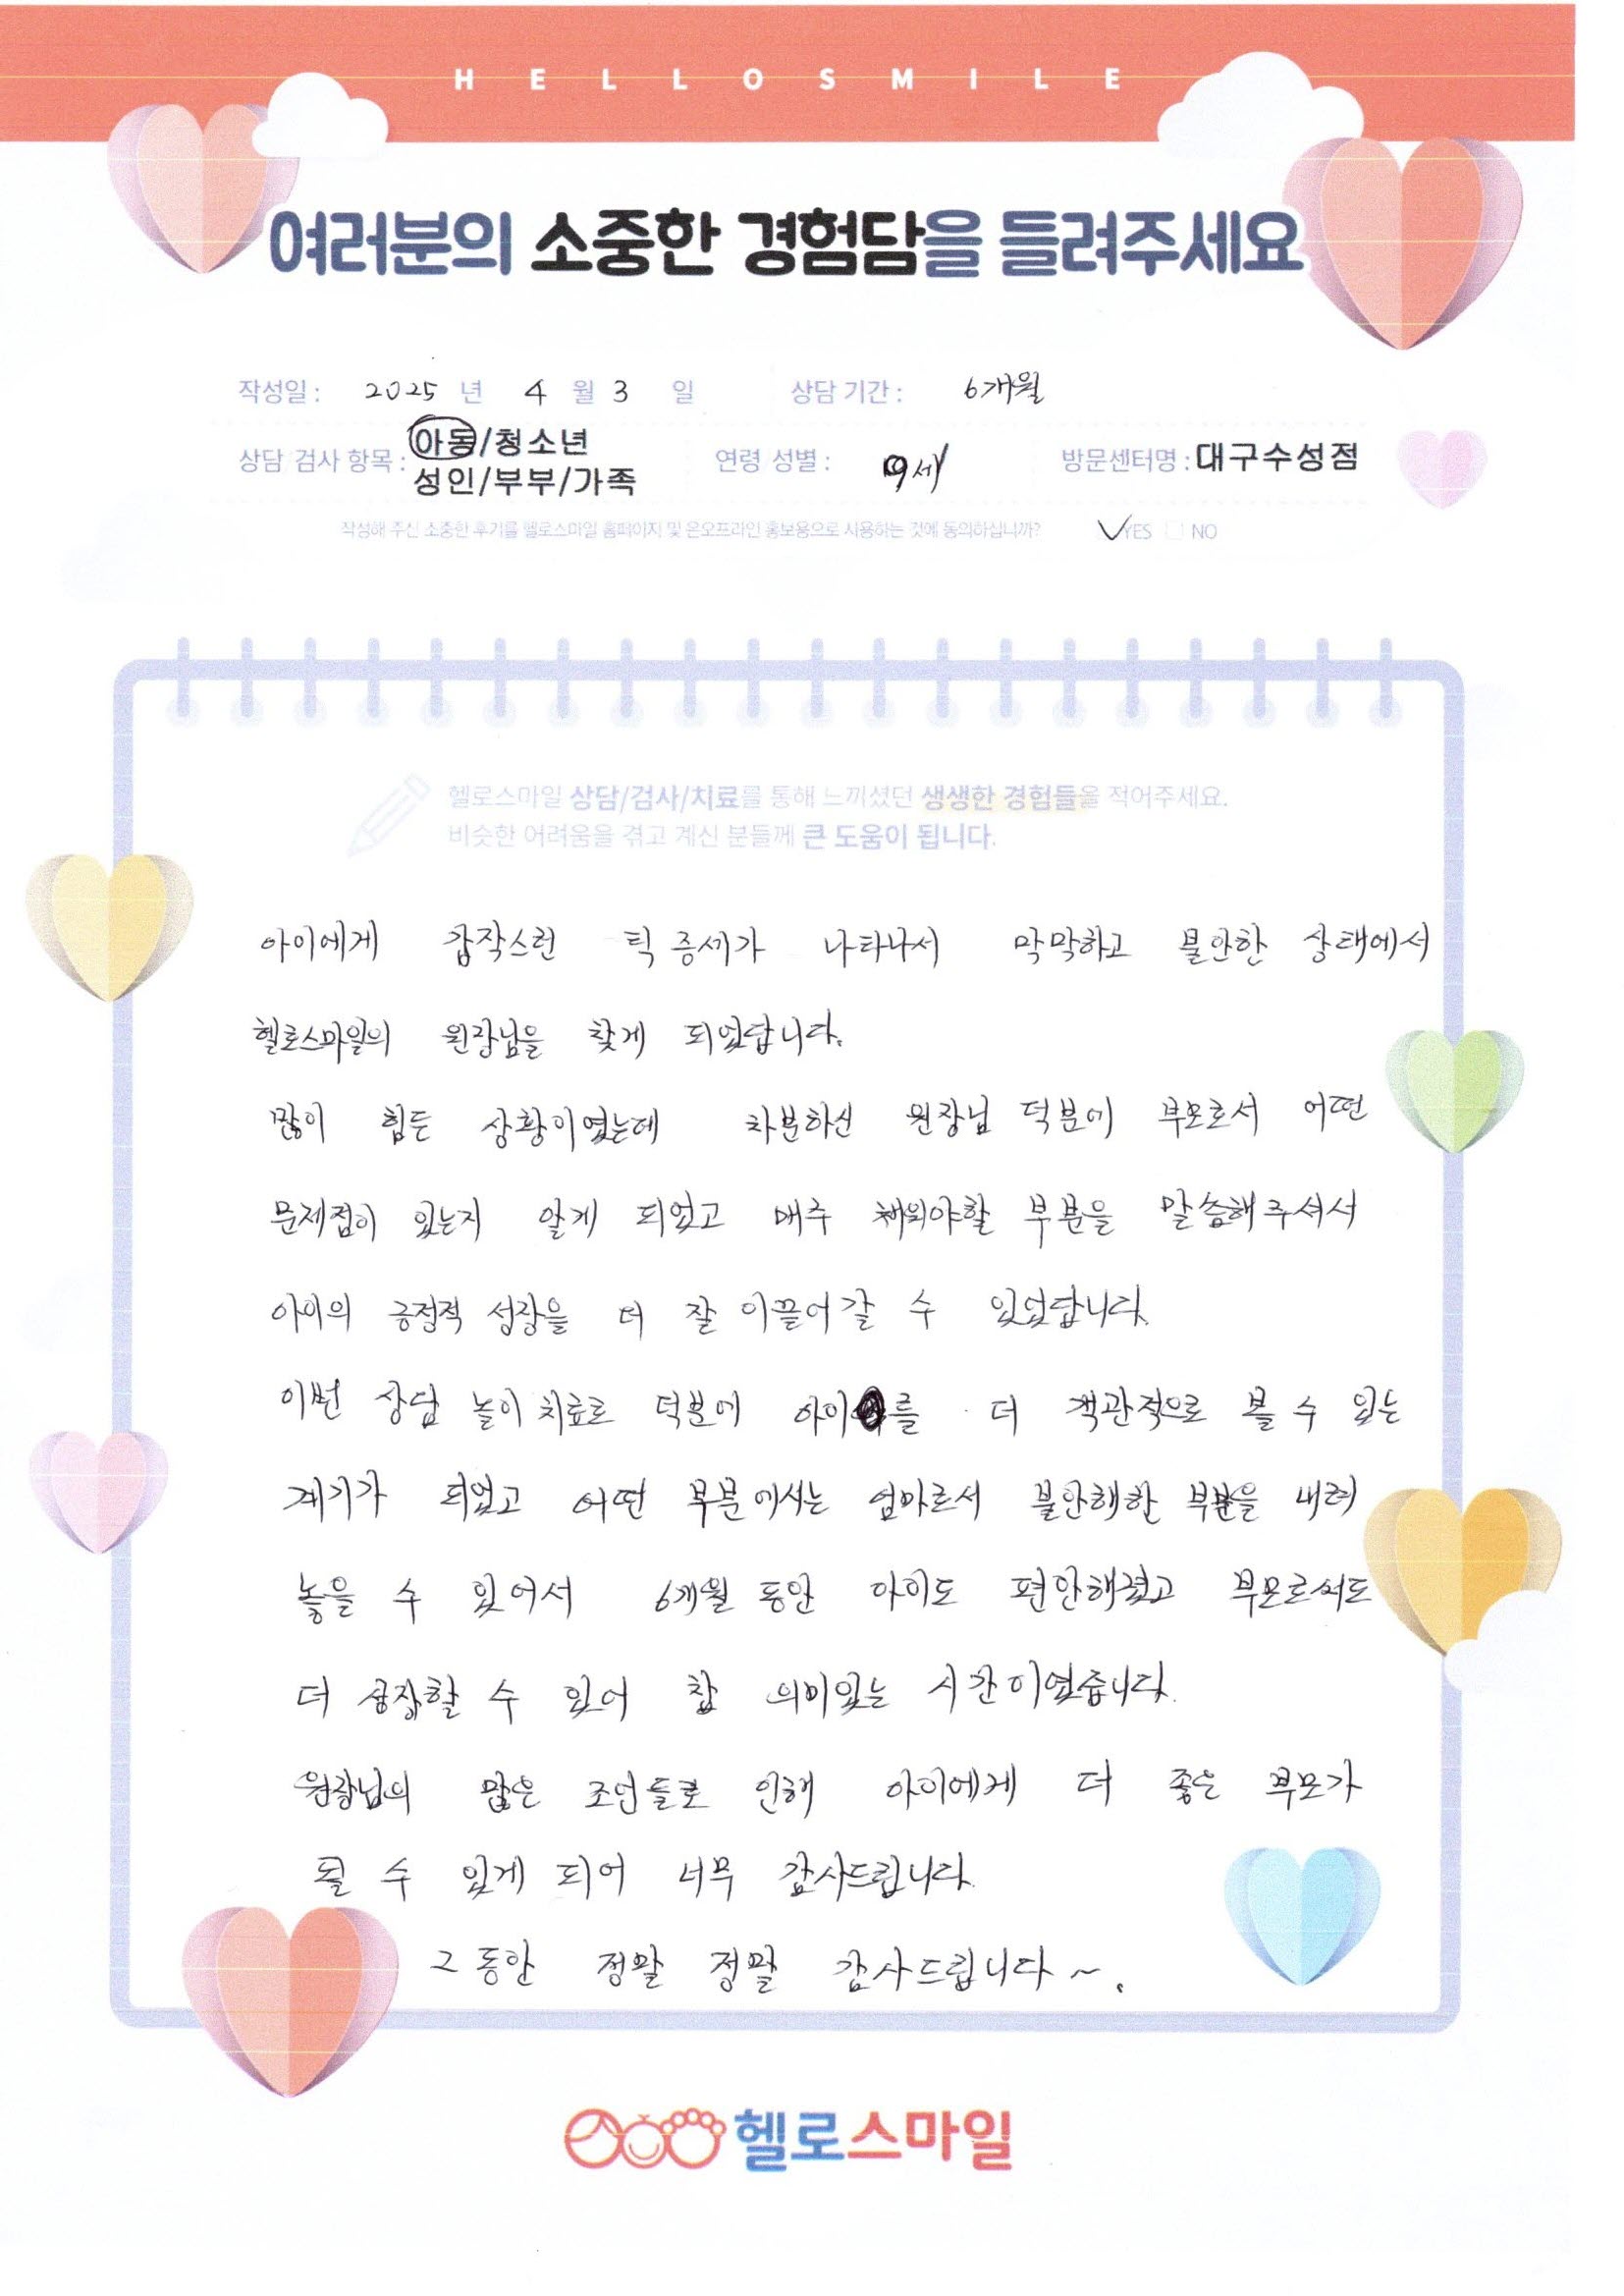 HELLOSMILE
여러분의 소중한 경험담을 들려주세요
작성일 : 2025 년 4 월 3 일 상담 기간 : 6개월
상담 검사 항목 : 아동/청소년 성인/부부/가족 연령 성별 : 9세 방문센터명 : 대구수성점
작성해 주신 소중한 후기를 헬로스마일 홈페이지 및 온오프라인 홍보용으로 사용하는 것에 동의하십니까? YES NO
헬로스마일 상담/검사/치료를 통해 느끼셨던 생생한 경험들을 적어주세요.
비슷한 어려움을 겪고 계신 분들께 큰 도움이 됩니다.
아이에게 갑작스런 틱 증세가 나타나서 막막하고 불안한 상태에서
헬로스마일의 원장님을 찾게 되었답니다.
많이 힘든 상황이였는데 차분하신 원장님 덕분에 부모로서 어떤
문제점이 있는지 알게 되었고 매주 채워야할 부분을 말씀해주셔서
아이의 긍정적 성장을 더 잘 이끌어갈 수 있었답니다.
이번 상담 놀이치료로 덕분에 아이를 더 객관적으로 볼 수 있는
계기가 되었고 어떤 부분에서는 엄마로서 불안해한 부분을 내려
놓을 수 있어서 6개월 동안 아이도 편안해졌고 부모로서도
더 성장할 수 있어 참 의미있는 시간이였습니다.
원장님의 많은 조언들로 인해 아이에게 더 좋은 부모가
될 수 있게 되어 너무 감사드립니다.
그동안 정말 정말 감사드립니다~.
헬로스마일